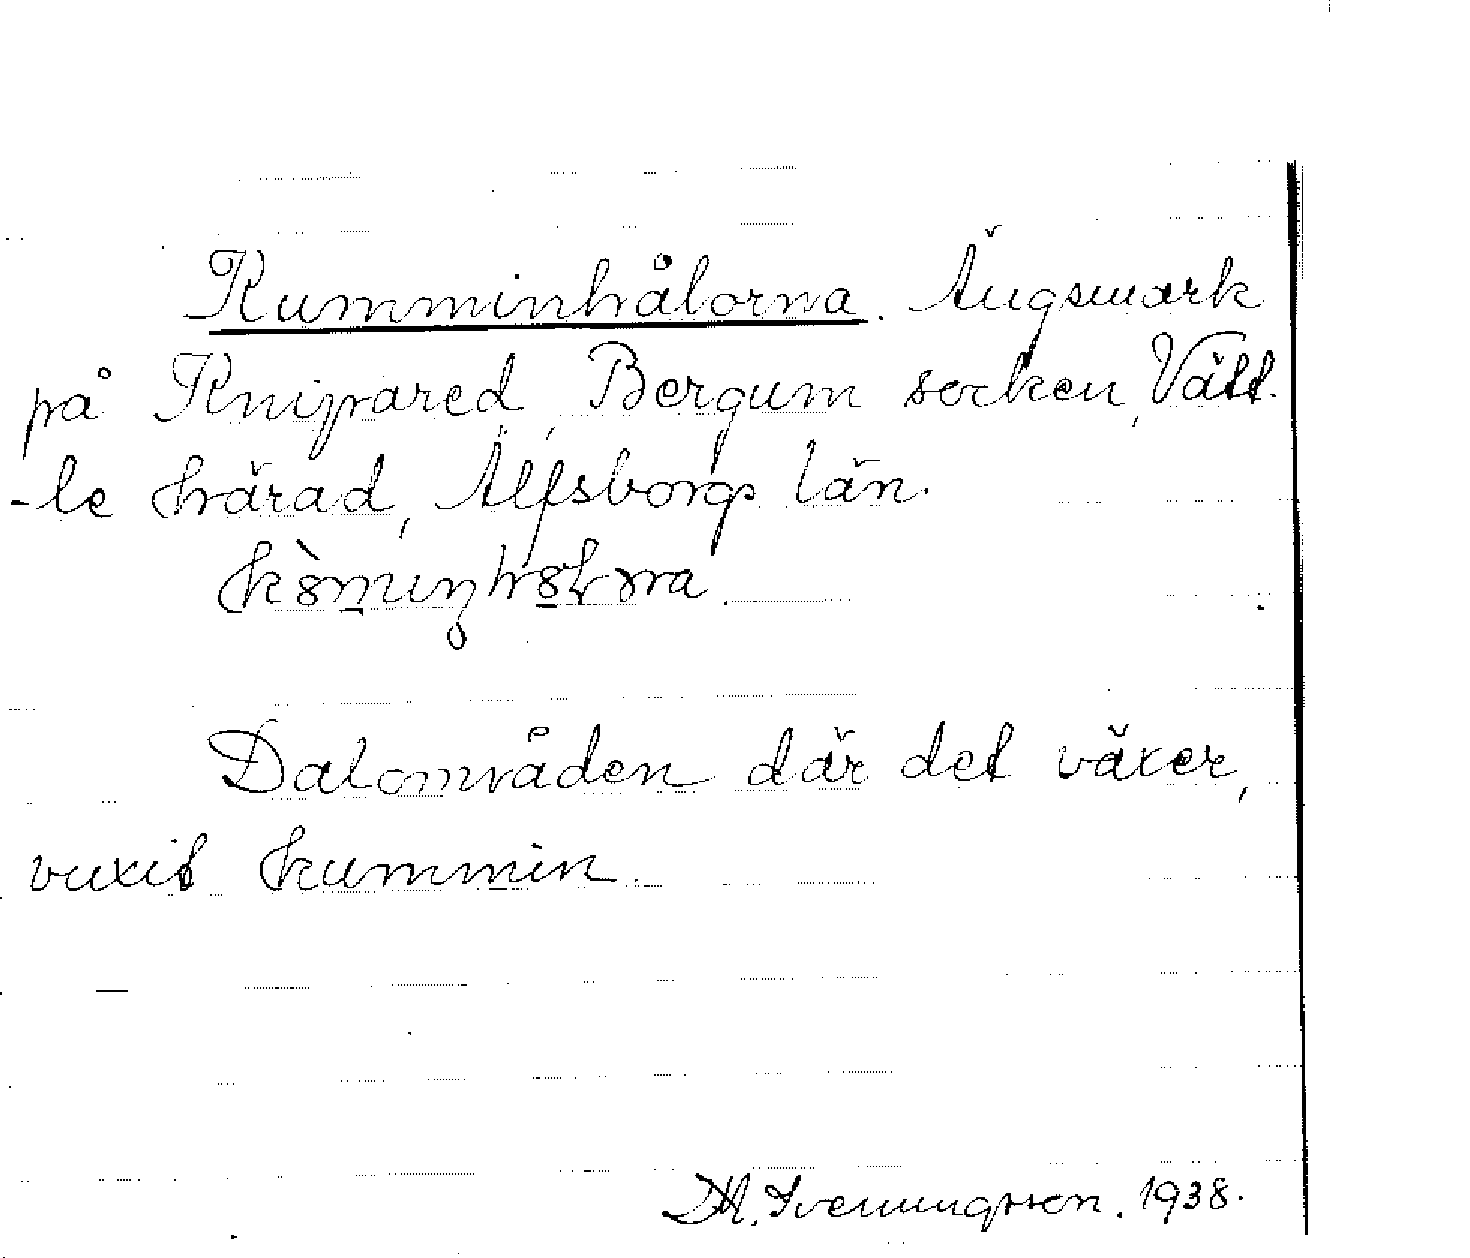 Kumminhålorna. Ängsmark
på Knipared, Bergum socken, Vätt-
-le härad, Älfsborgs län.
Dalområden där det växer,
vuxit kummin.
M. Svenungsson. 1938.